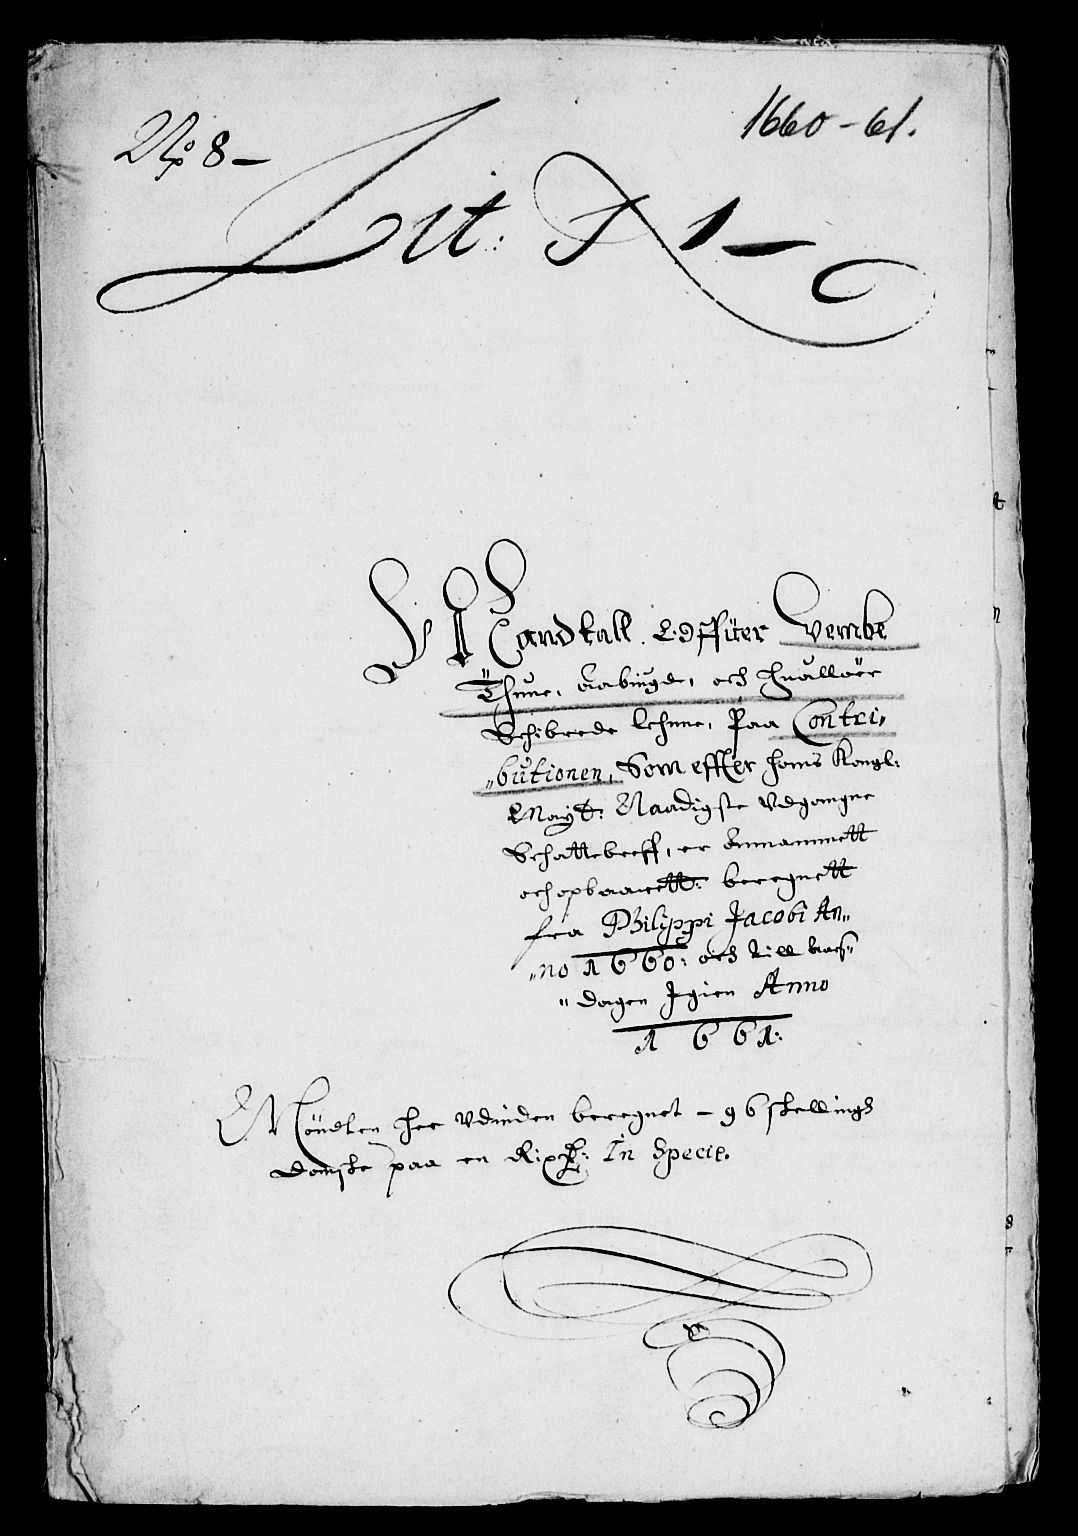 No 8 —
1660-61.
Lit: J 1 —
Mandtall. Offuer Vembe
Thune, Aabiugde, och Huallöer
Schibrede Lehnne, Paa Contri„
„butionen, Som effter Hans Kongl:
Mayt: Naadigste Vdgangne
Schattebreff, er Annammett
och opbaarett: beregnett
fra Philippi Jacobi An„
„no 1660: och till
„dagen Igien Anno
1661:
Möndten her Vdinden beregnet — 96 skellings
Danske paa en Rix In Specie.